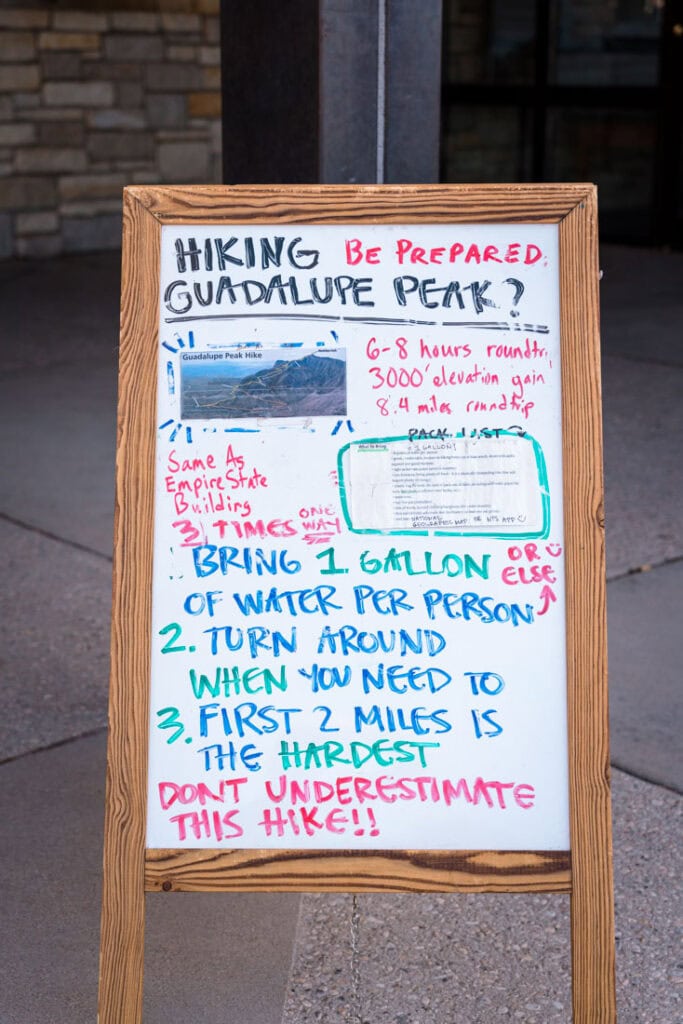 HIKING BE PREPARED.
GUADALUPE PEAK?
Guadalupe Peak Hike
6-8 hours roundtr.
3000' elevation gain
8.4 miles roundtrip
PACK LIST
1 GALLON!
Same As
Empire State
Building
3 TIMES ONE WAY
NATIONAL
GEOGRAPHIC MAP OR NPS APP
BRING 1 GALLON OR
ELSE
OF WATER PER PERSON
2. TURN AROUND
WHEN YOU NEED TO
3. FIRST 2 MILES IS
THE HARDEST
DONT UNDERESTIMATE
THIS HIKE!!